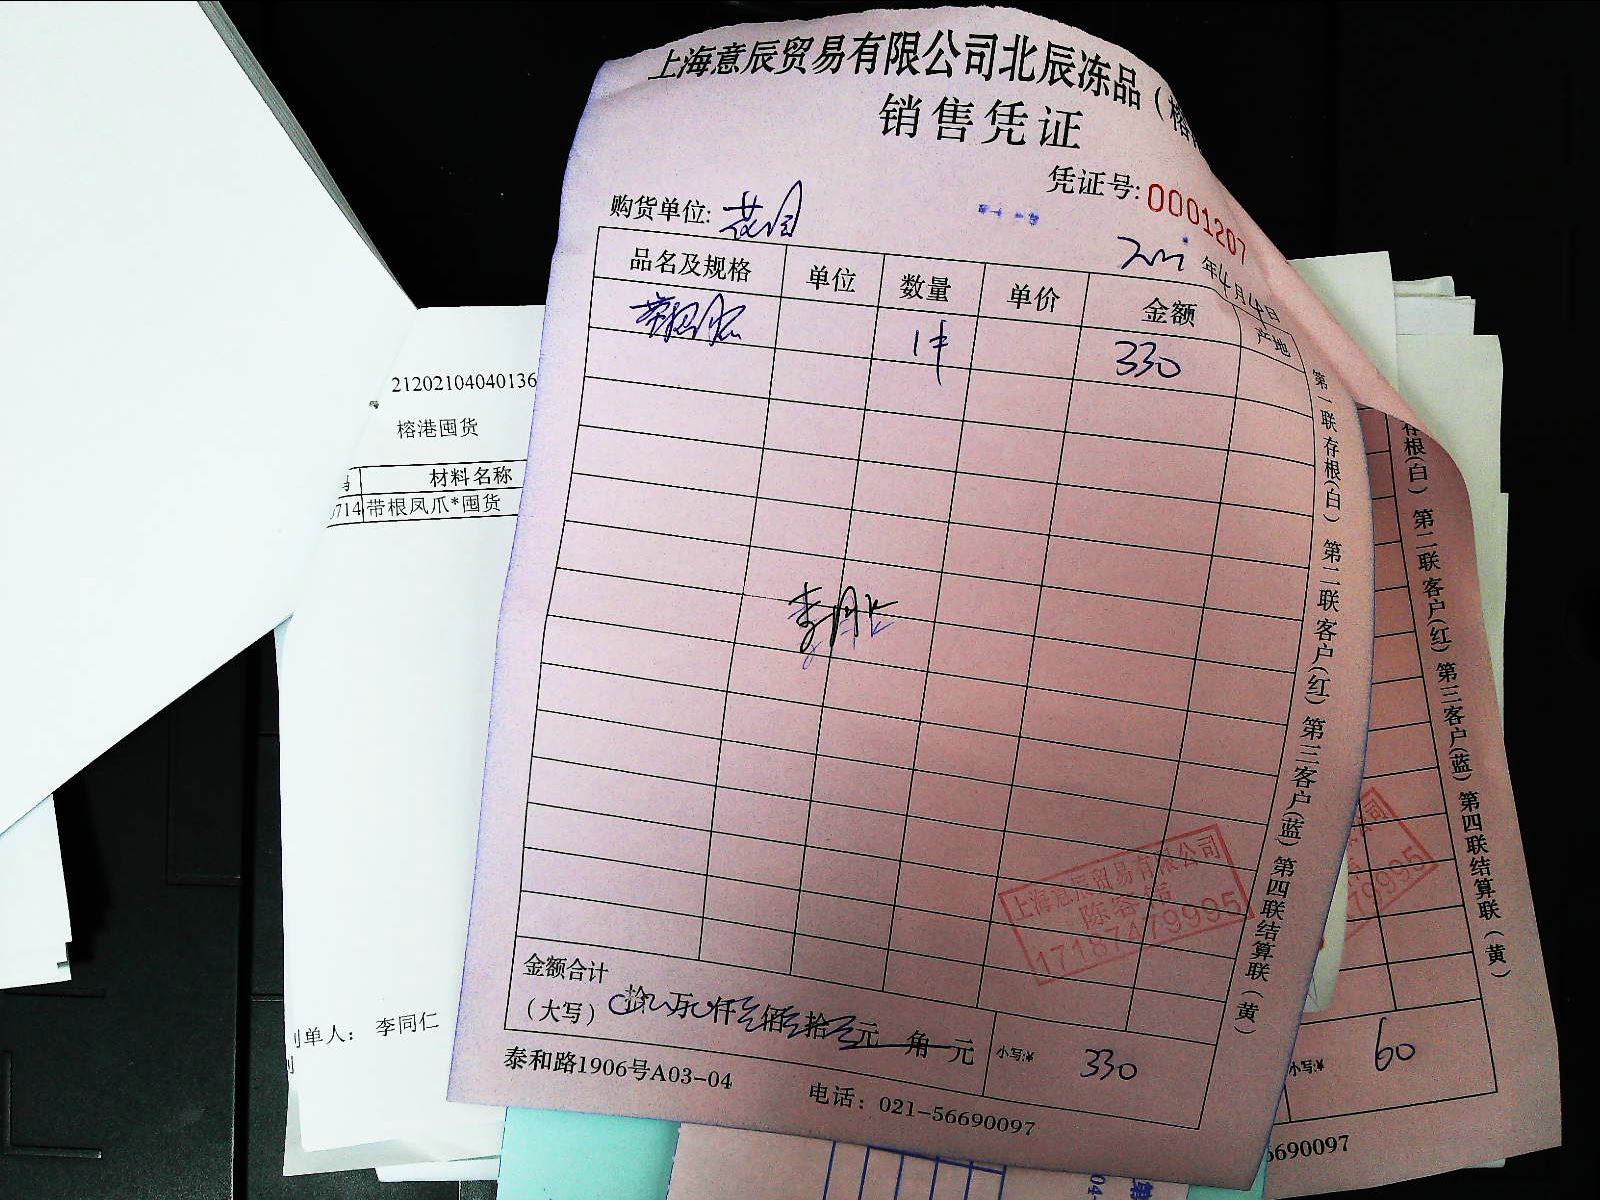 上海意辰贸易有限公司北辰冻品（榕
销售凭证
凭证号:0001207
购货单位:
年4月4日
品名及规格 单位 数量 单价 金额 产地
1件 330
第一联存根(白) 第二联客户(红) 第三客户(蓝) 第四联结算联(黄)
上海意辰贸易有限公司
17187479995
金额合计
(大写) 拾 万 仟 佰 拾 元 角 元 小写:¥ 330
泰和路1906号A03-04 电话: 021-56690097
21202104040136
榕港囤货
材料名称
714 带根凤爪*囤货
制单人: 李同仁
存根(白) 第二联客户(红) 第三客户(蓝) 第四联结算联(黄)
79995
小写:¥ 60
6690097